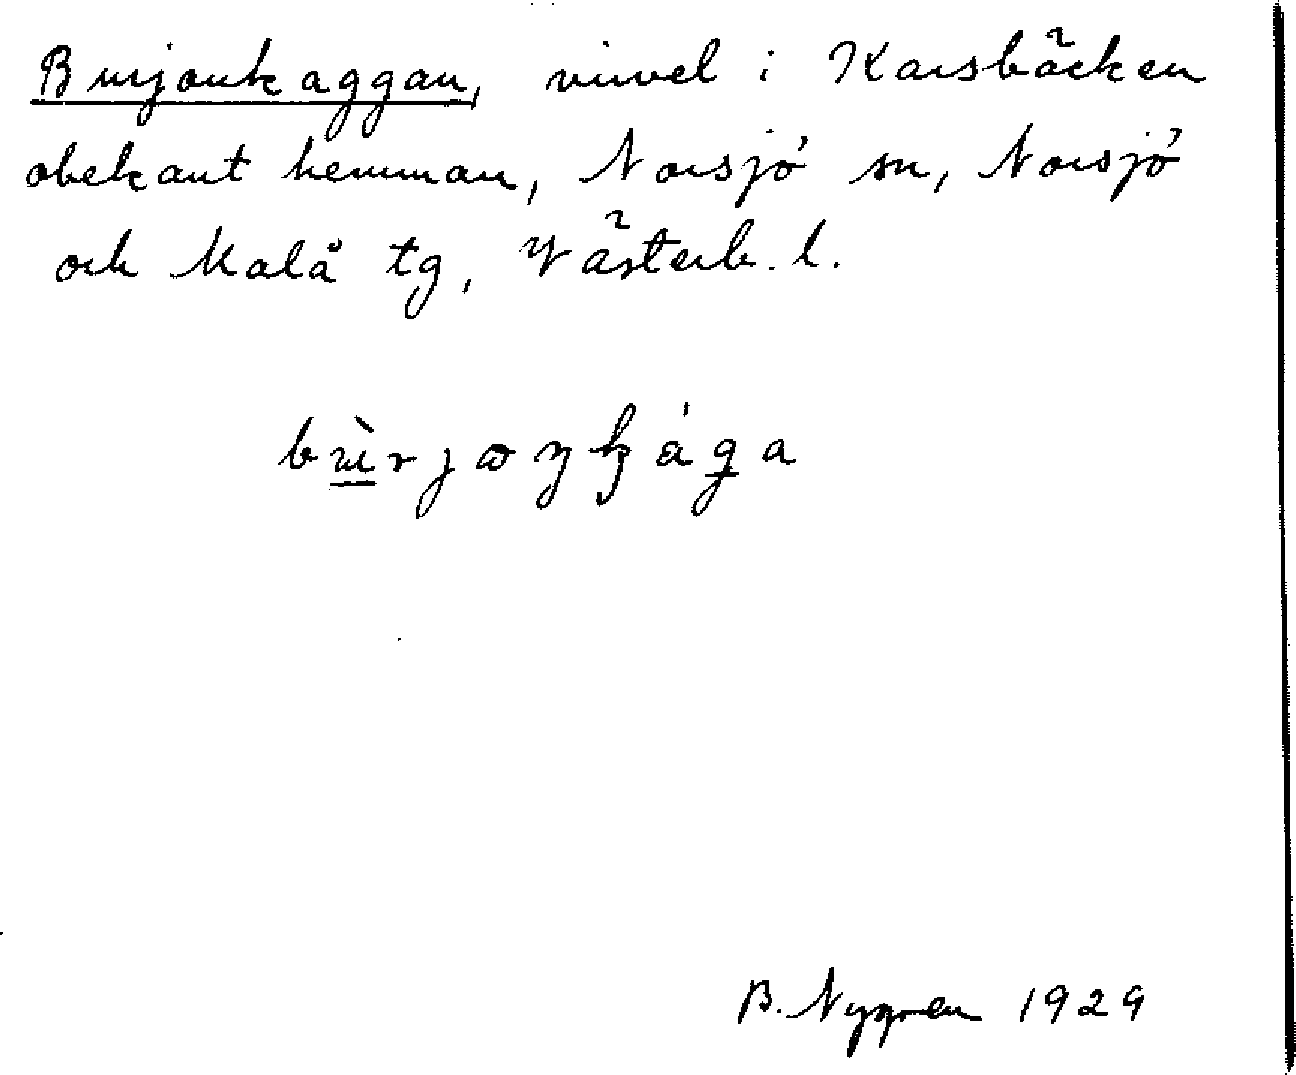 Burjonkaggan, virvel i Karsbäcken
obekant hemman, Norsjö sn, Norsjö
och Malå tg, Västerb. l.
B. Nygren 1929